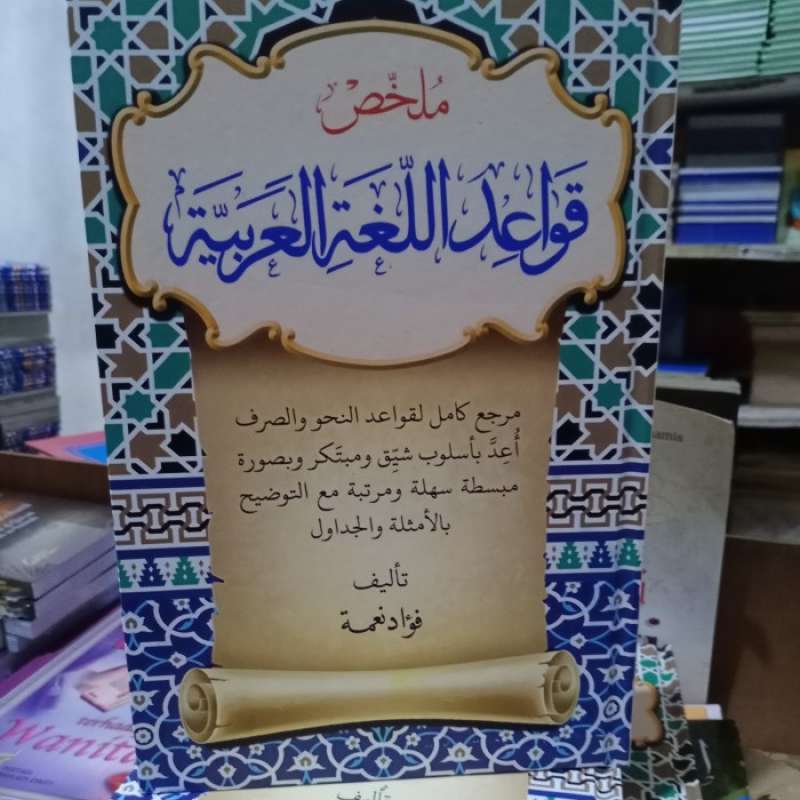 مُلخّص
قَواعِد اللّغَةِ العَرَبيَّة
مرجع كامل لقواعد النحو والصرف
أُعِدَّ بأسلوب شيِّق ومبتَكر وبصورة
مبسطة سهلة ومرتبة مع التوضيح
بالأمثلة والجداول
تأليف
فؤاد نعمة
Wanita
تأليف